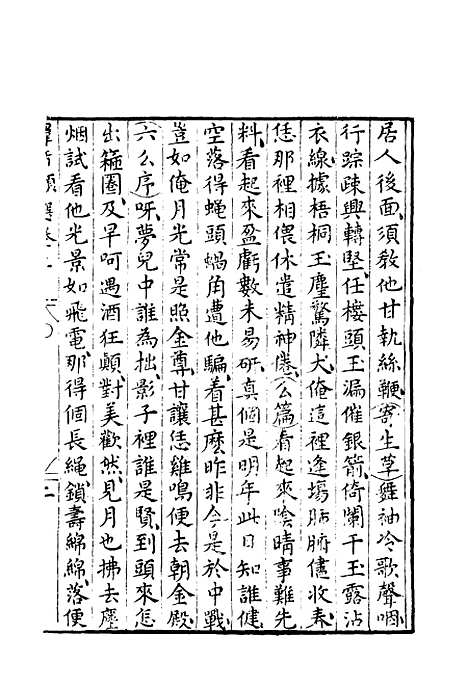 居人後面須敎他甘執絲鞭寄生草舞袖冷歌聲咽
行踪疎興轉堅任樓頭玉漏催銀箭倚闌干玉露沾
衣線據梧桐玉塵驚隣犬俺這裡逢塲肺腑儘收奏
恁那裡相偎休遣精神倦么篇看起來陰晴事難先
料看起來盈虧數未易硏真個是明年此日知誰健
空落得蝇頭蝸角遭他騙着甚麽昨非今是於中戰
豈如俺月光常是照金尊甘讓恁雞鳴便去朝金殿
六么序呀夢兒中誰為拙影子裡誰是賢到頭來怎
出箍圈及早呵遇酒狂顛對美歡然見月也拂去塵
烟試看他光景如飛電那得個長繩鎖壽綿綿落便